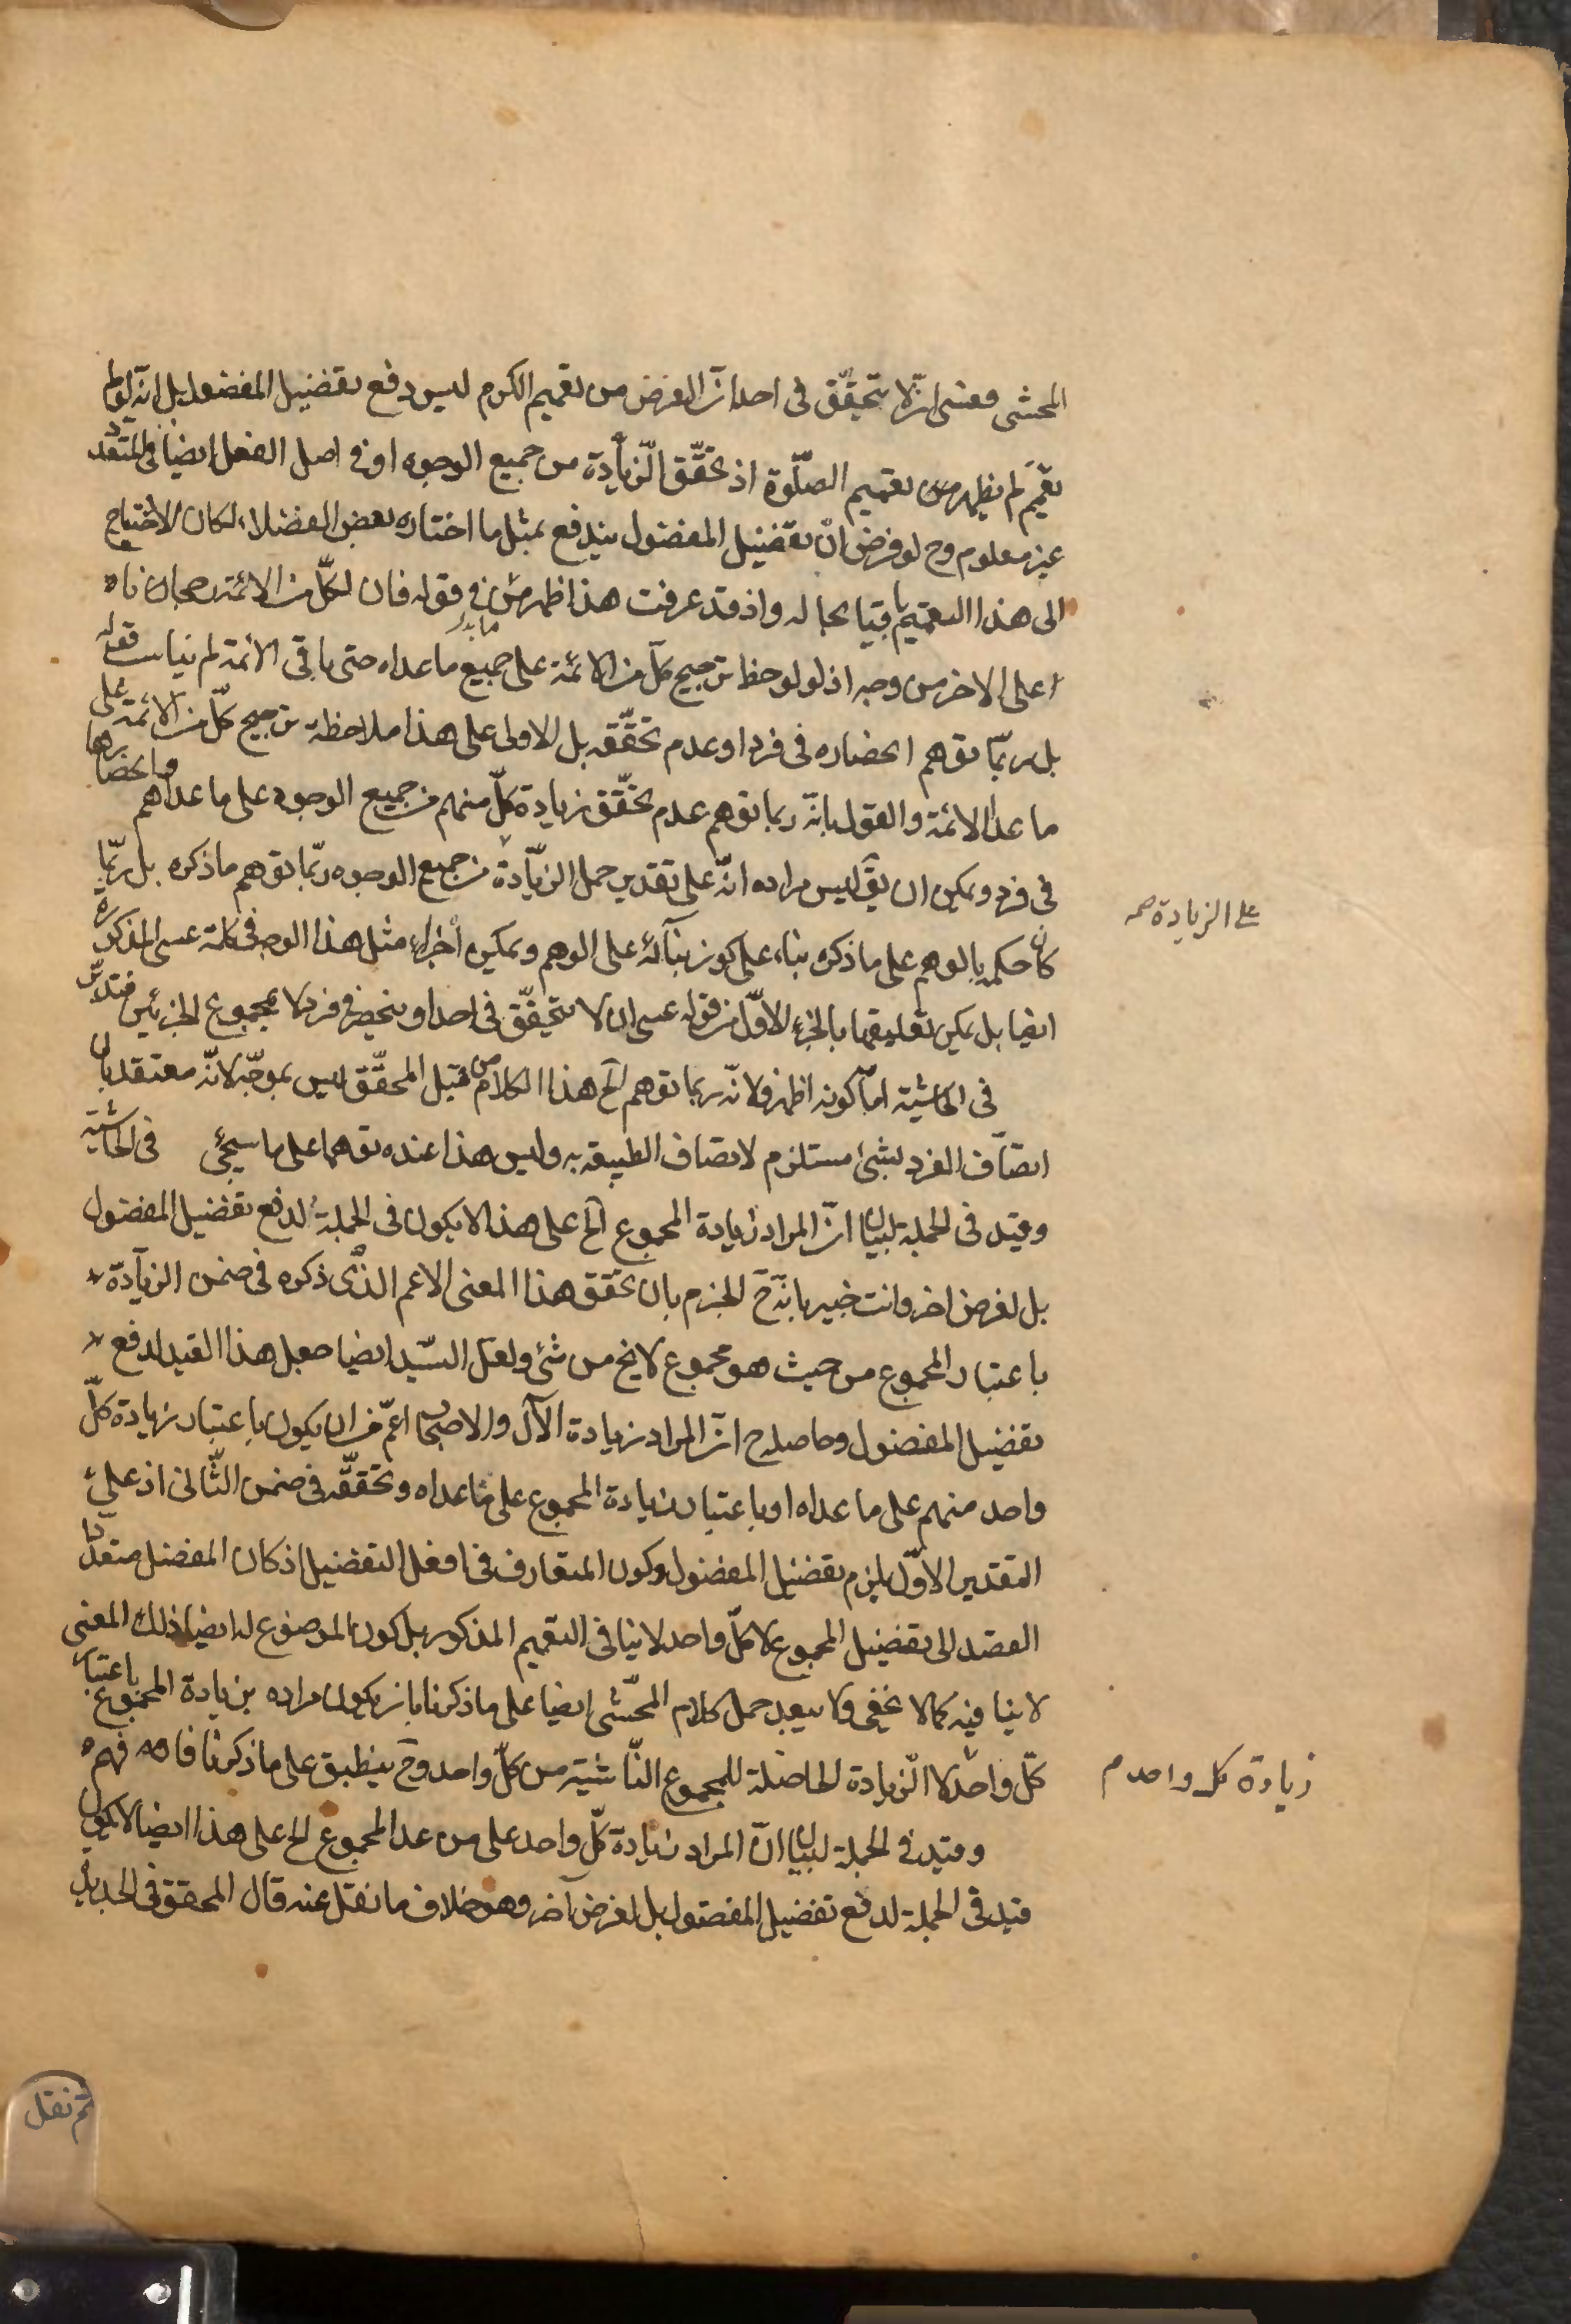 المحشى فعسى ان لا يتحقّق فى احد انّ الغرض من تعميم الكرم ليس دفع تفضيل المفضول بل انّه لولم
تعمّيم لم يظهر من تعميم الصّلوة اذ تحقّق الزّيادة من جميع الوجوه او فى اصل الفعل ايضا فى المتعدّد
غير معلوم وح لو فرض انّ تفضيل المفضول يندفع بمثل ما اختاره بعض الفضلاء لكان الاحتياج
الى هذا التعميم باقيا بحاله واذ قد عرفت هذا ظهر من فى قوله فان لكلّ من الائمة رجحانا
على الاخر من وجه اذ لو لوحظ ترجيح كلّ من الائمة على جميع ما عداه حتى باقى الائمة لم يناسب قوله
بل ربّما توهم انحصاره فى فرد او عدم تحقّقه بل الاولى على هذا ملاحظة ترجيح كلّ من الائمة على
ما عدا الائمة والقول بانّه ربما توهم عدم تحقّق زيادة كلّ منهم من جميع الوجوه على ما عداهم وانحصارها
فى فرد ويمكن ان يقّ ليس مراده انّه على تقدير حمل الزّيادة من جميع الوجوه ربّما توهم ما ذكره بل ربّما
على الزيادة صح
كان حكمه بالوهم على ما ذكره بناء على كونه بنآئه على الوهم ويمكن اجراء مثل هذا الوجه فى كلمة عسى المذكورة
ايضا بل يمكن تعليقها بالجزء الاوّل من قوله عسى ان لا يتحقّق فى احد او ينحصر فى فرد لا بمجموع الجزئين فتدبّر
فى الحاشية امّا كونه اظهر فلانّه ربما توهم الخ هذا الكلام من قبل المحقّق ليس بموجّه لانّه معتقد بان
اتصّاف الفرد بشئ مستلزم لاتصاف الطبيعة به وليس هذا عنده توهما على ما سيجئ فى الحاشية
وقيد فى الجملة لبيان انّ المراد زيادة المجموع الخ على هذا لا يكون فى الجملة لدفع تفضيل المفضول
بل لغرض اخر وانت خبير بانّه ح الجزم بان تحقّق هذا المعنى الاعم الذّى ذكره فى ضمن الزيّادة
باعتبار المجموع من حيث هو مجموع لا يخ من شئ ولعل السّيد ايضا جعل هذا القيد لدفع
تفضيل المفضول وحاصله ح انّ المراد زيادة الآل والاصحاب اعمّ من ان يكون باعتبار زيادة كلّ
واحد منهم على ما عداه او باعتبار زيادة المجموع على ما عداه وتحقّقه فى ضمن الثّانى اذ على
التقدير الاوّل يلزم تفضيل المفضول وكون المتعارف فى افعل التفضيل اذ كان المفضل متعدّدا
القصد الى تفضيل المجموع لا كلّ واحد لا ينافى التعميم المذكور بل كون الموضوع له ايضا ذلك المعنى
لا ينافيه كما لا يخفى ولا يبعد حمل كلام المحّشى ايضا على ما ذكرنا بان يكون مراده بزيادة المجموع باعتبار
كلّ واحد لا الزّيادة الحاصلة للمجموع النّاشئية من كلّ واحد وح ينطبق على ما ذكرنا فافهم
زيادة كل واحد م
وقيد فى الجملة لبيان انّ المراد زيادة كلّ واحد على من عدا المجموع الخ على هذا ايضا لا يكون
قيد فى الجملة لدفع تفضيل المفضول بل لغرض آخر وهو خلاف ما نقل عنه قال المحقق فى الجديد
ثم نقل